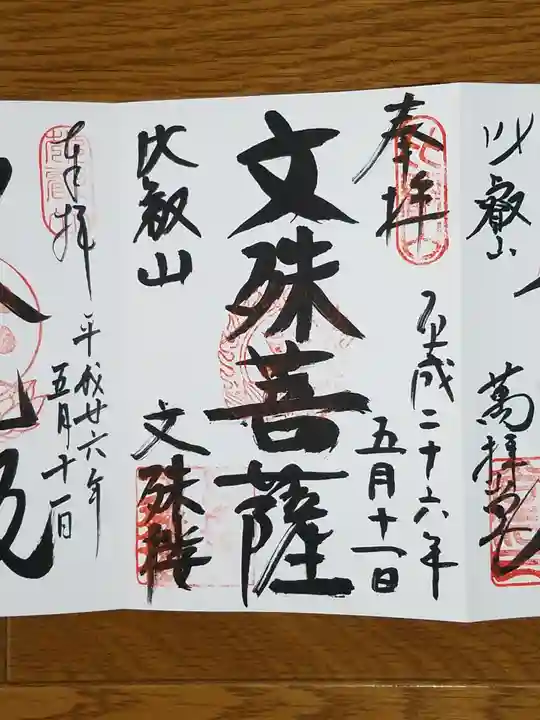 比叡山
萬拝堂
奉拝
平成二十六年
五月十一日
文殊菩薩
比叡山
文殊楼
奉拝
平成廿六年
五月十一日